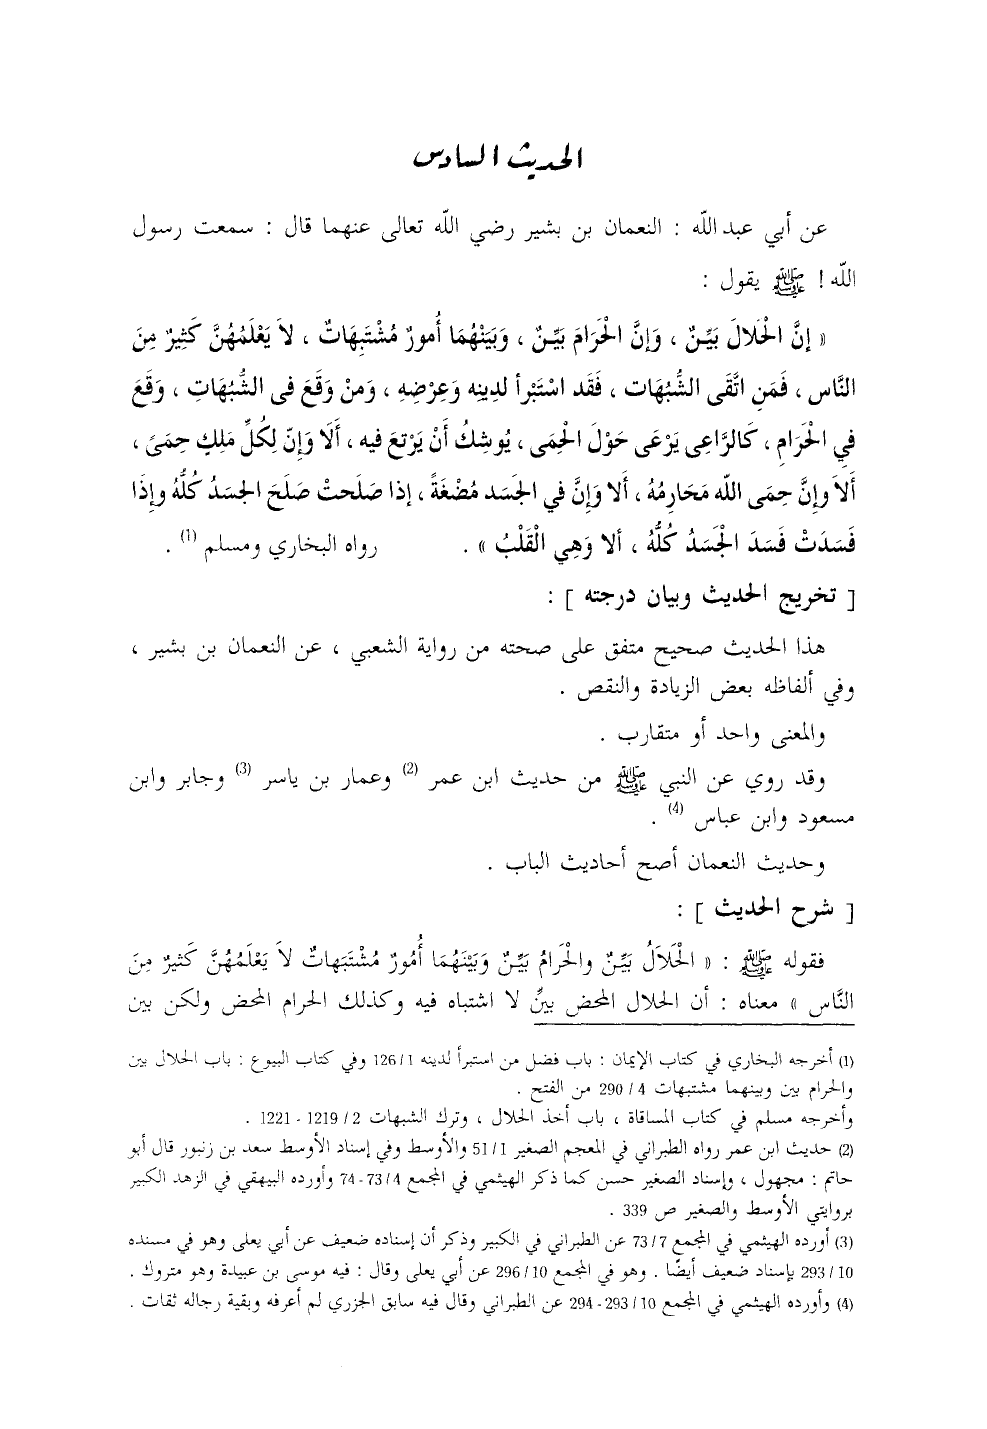 الحديث السادس
عن أبي عبد الله : النعمان بن بشير رضي الله تعالى عنهما قال : سمعت رسول
الله ! ﷺ يقول :
« إنَّ الْحَلالَ بَيِّـنٌ ، وَإنَّ الْحَرامَ بَيِّـنٌ ، وَبَيَنْهُمَا أُمورٌ مُشْتَبِهَاتٌ ، لاَ يَعْلَمُهُنَّ كَثِيرٌ مِنَ
النَّاس ، فَمَنِ اتَّقَى الشُّبُهَات ، فَقَد اسْتَبْرأ لدِينِه وَعِرْضِهِ ، وَمنْ وَقَعَ فى الشُّبُهَاتِ ، وَقَعَ
فِي الْحَرامِ ، كَالرَّاعِى يَرْعَى حَوْلَ الْحِمَى ، يُوشِكُ أَنْ يَرْتعَ فيه ، أَلَا وَإنّ لِكُلِّ مَلِكٍ حِمَىً ،
أَلاَ وإنَّ حِمَى الله مَحَارِمُهُ ، أَلا وَإنَّ في الجَسَد مُضْغَةً ، إذا صَلَحتْ صَلَحَ الجسَدُ كُلُّهُ وإذَا
فَسَدَتْ فَسَدَ الْجَسَدُ كُلُّهُ ، ألا وَهِي الْقَلْبُ » . رواه البخاري ومسلم (1) .
[ تخريج الحديث وبيان درجته ] :
هذا الحديث صحيح متفق على صحته من رواية الشعبي ، عن النعمان بن بشير ،
وفي ألفاظه بعض الزيادة والنقص .
والمعنى واحد أو متقارب .
وقد روي عن النبي ﷺ من حديث ابن عمر (2) وعمار بن ياسر (3) وجابر وابن
مسعود وابن عباس (4) .
وحديث النعمان أصح أحاديث الباب .
[ شرح الحديث ] :
فقوله ﷺ : « الْحَلَالُ بَيِّـنٌ والْحَرامُ بَيِّـنٌ وَبَيْنَهُمَا أُمُورٌ مُشْتَبَهاتٌ لاَ يَعْلَمُهُنَّ كَثيرٌ مِنَ
النَّاس » معناه : أن الحلال المحض بينٌ لا اشتباه فيه وكذلك الحرام المحض ولكن بين
(1) أخرجه البخاري في كتاب الإيمان : باب فضل من استبرأ لدينه 1/126 وفي كتاب البيوع : باب الحلال بين
والحرام بين وبينهما مشتبهات 4/290 من الفتح .
وأخرجه مسلم في كتاب المساقاة ، باب أخذ الحلال ، وترك الشبهات 2/1219 - 1221 .
(2) حديث ابن عمر رواه الطبراني في المعجم الصغير 1/51 والأوسط وفي إسناد الأوسط سعد بن زنبور قال أبو
حاتم : مجهول ، وإسناد الصغير حسن كما ذكر الهيثمي في المجمع 4/73-74 وأورده البيهقي في الزهد الكبير
بروايتي الأوسط والصغير ص 339 .
(3) أورده الهيثمي في المجمع 7/73 عن الطبراني في الكبير وذكر أن إسناده ضعيف عن أبي يعلى وهو في مسنده
10/293 بإسناد ضعيف أيضًا . وهو في المجمع 10/296 عن أبي يعلى وقال : فيه موسى بن عبيدة وهو متروك .
(4) وأورده الهيثمي في المجمع 10/293-294 عن الطبراني وقال فيه سابق الجزري لم أعرفه وبقية رجاله ثقات .